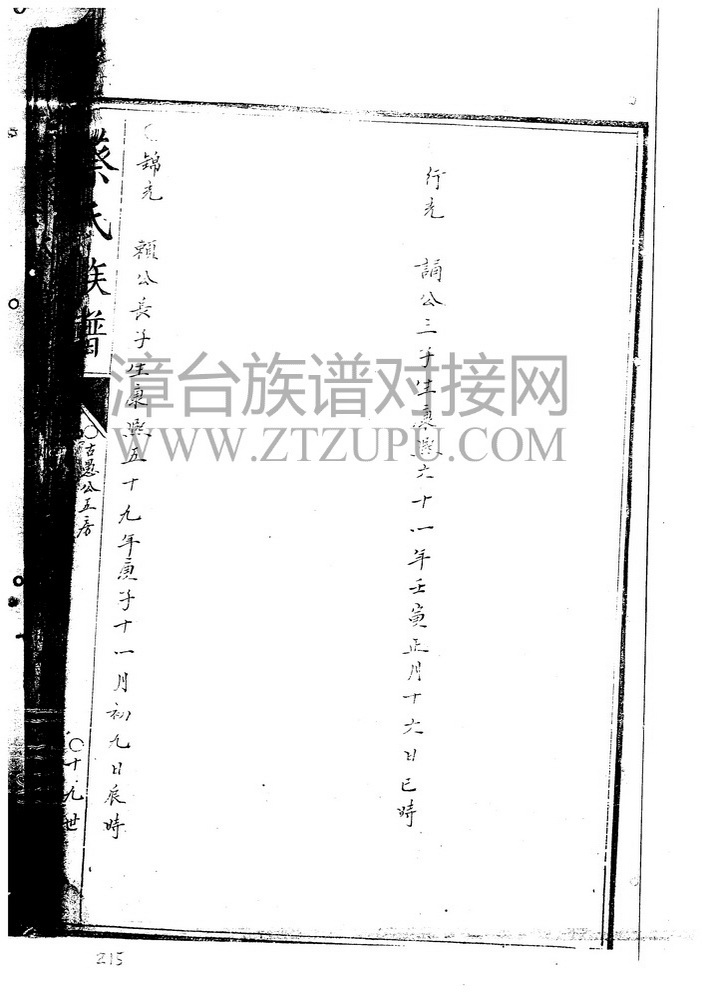 行光　誦公三子生康熙六十一年壬寅正月十六日巳時
○錦光　賴公長子生康熙五十九年庚子十一月初九日辰時
蔡氏族譜
○古愚公五房
○十九世
漳台族谱对接网
WWW.ZTZUPU.COM
215